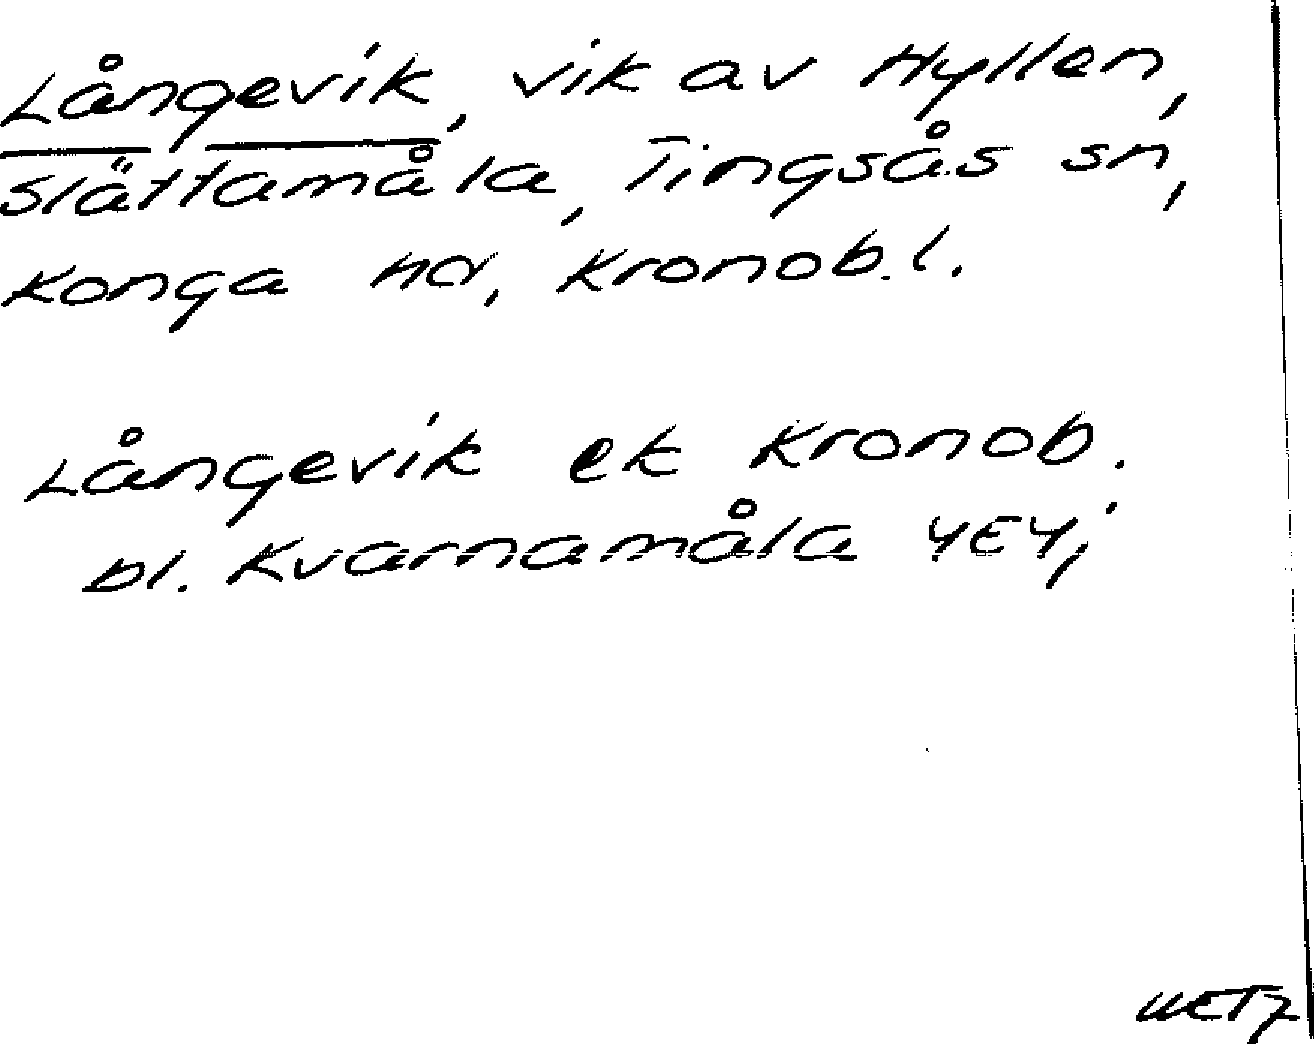 Långevik, vik av Hyllen,
Slättamåla, Tingsås sn,
Konga hd, Kronob. l.
Långevik ek Kronob.
bl. Kvarnamåla 4E4j